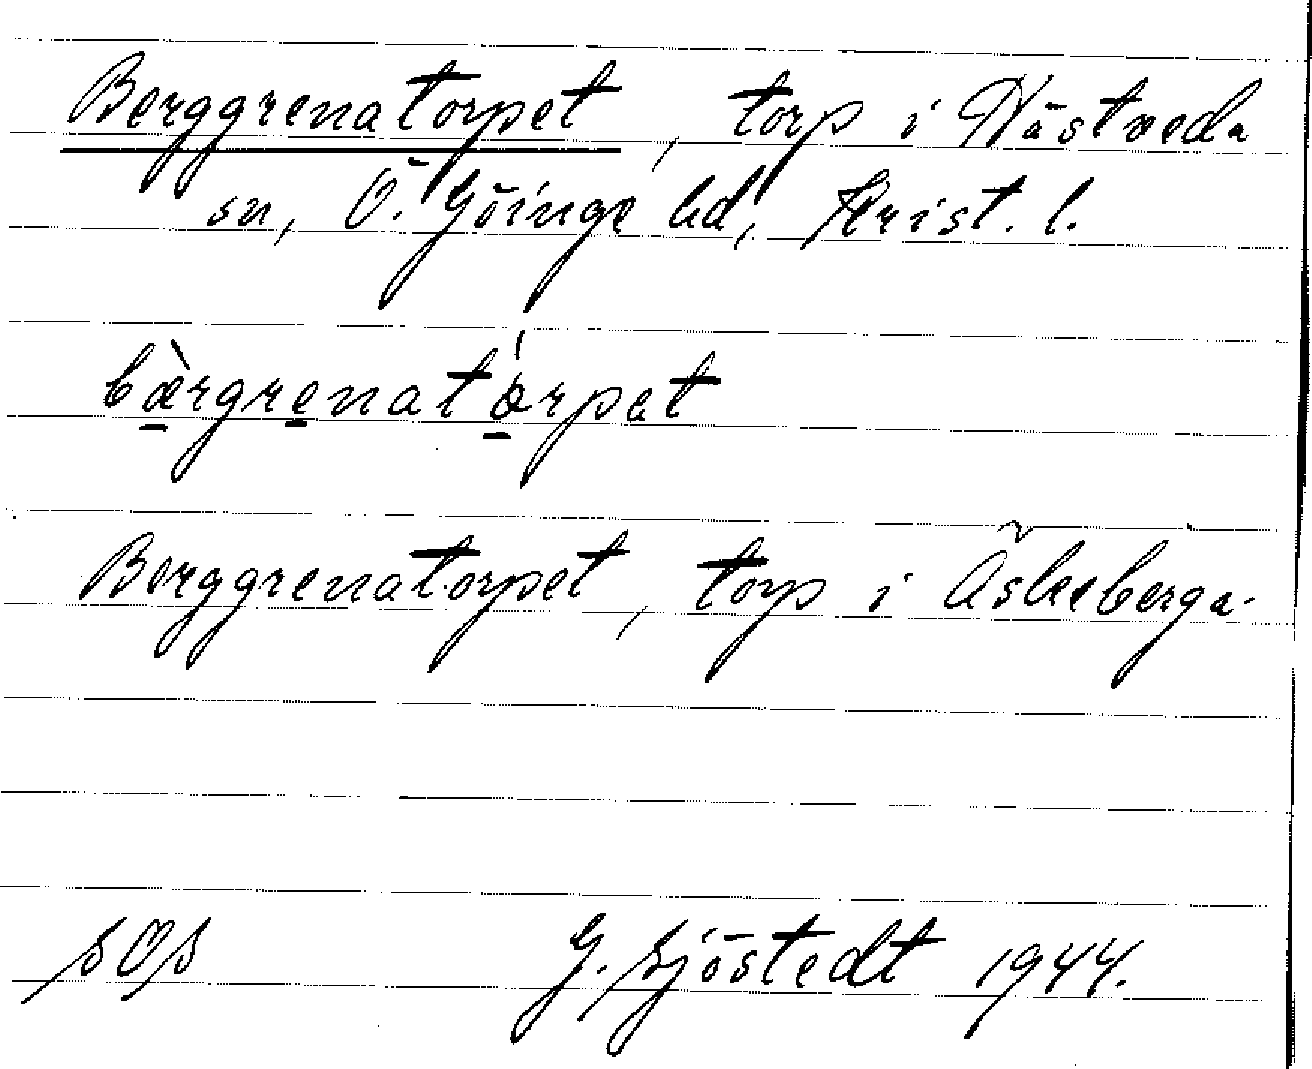 Berggrenatorpet, torp i Hästveda
sn, Ö. Göinge hd, Krist. l.
bæ̀rgrenatǻrpet
Berggrenatorpet, torp i Äskeberga.
SOS G. Sjöstedt 1944.